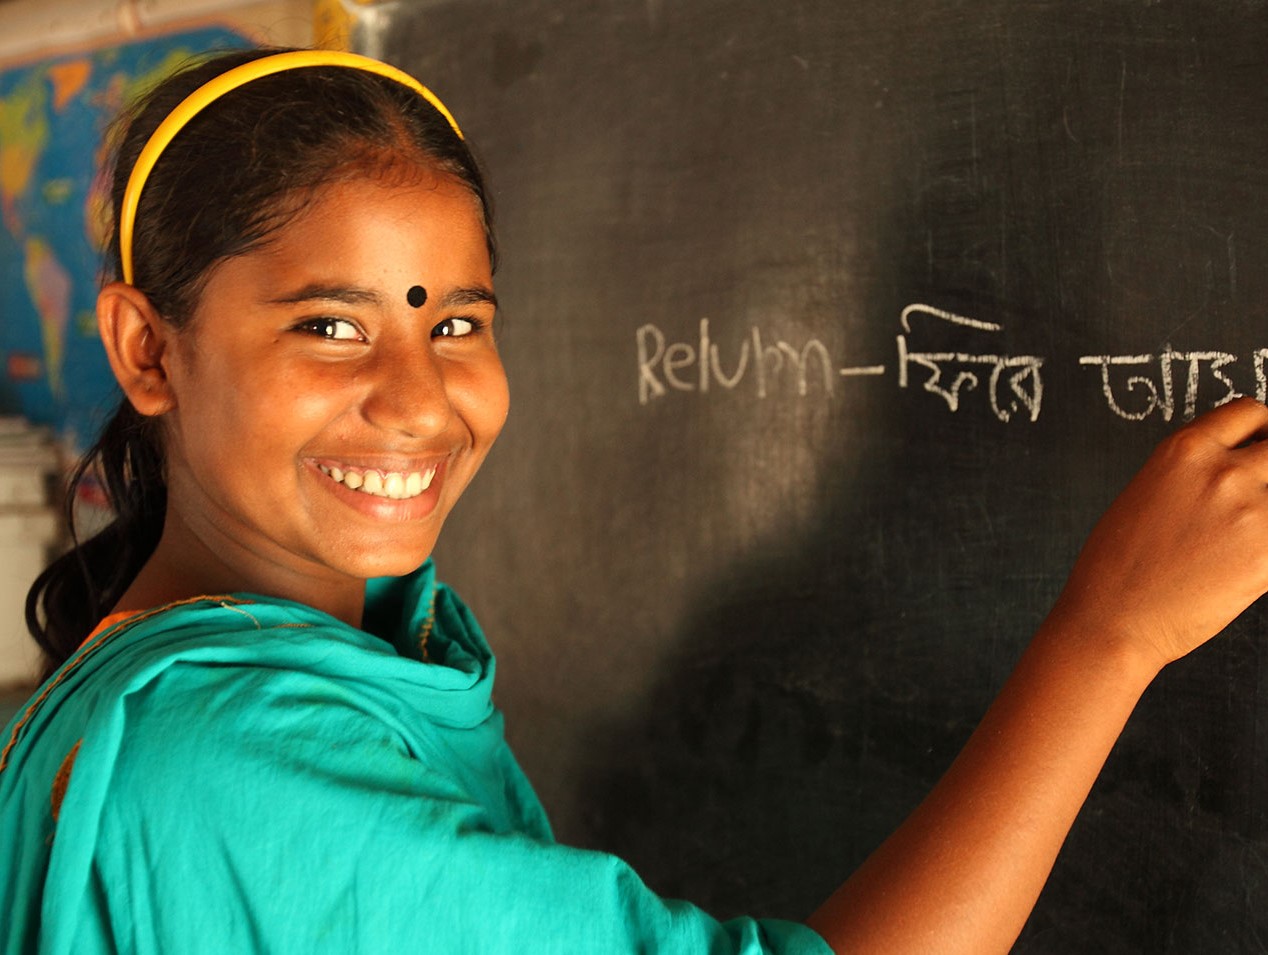 Return – ফিরে আসা